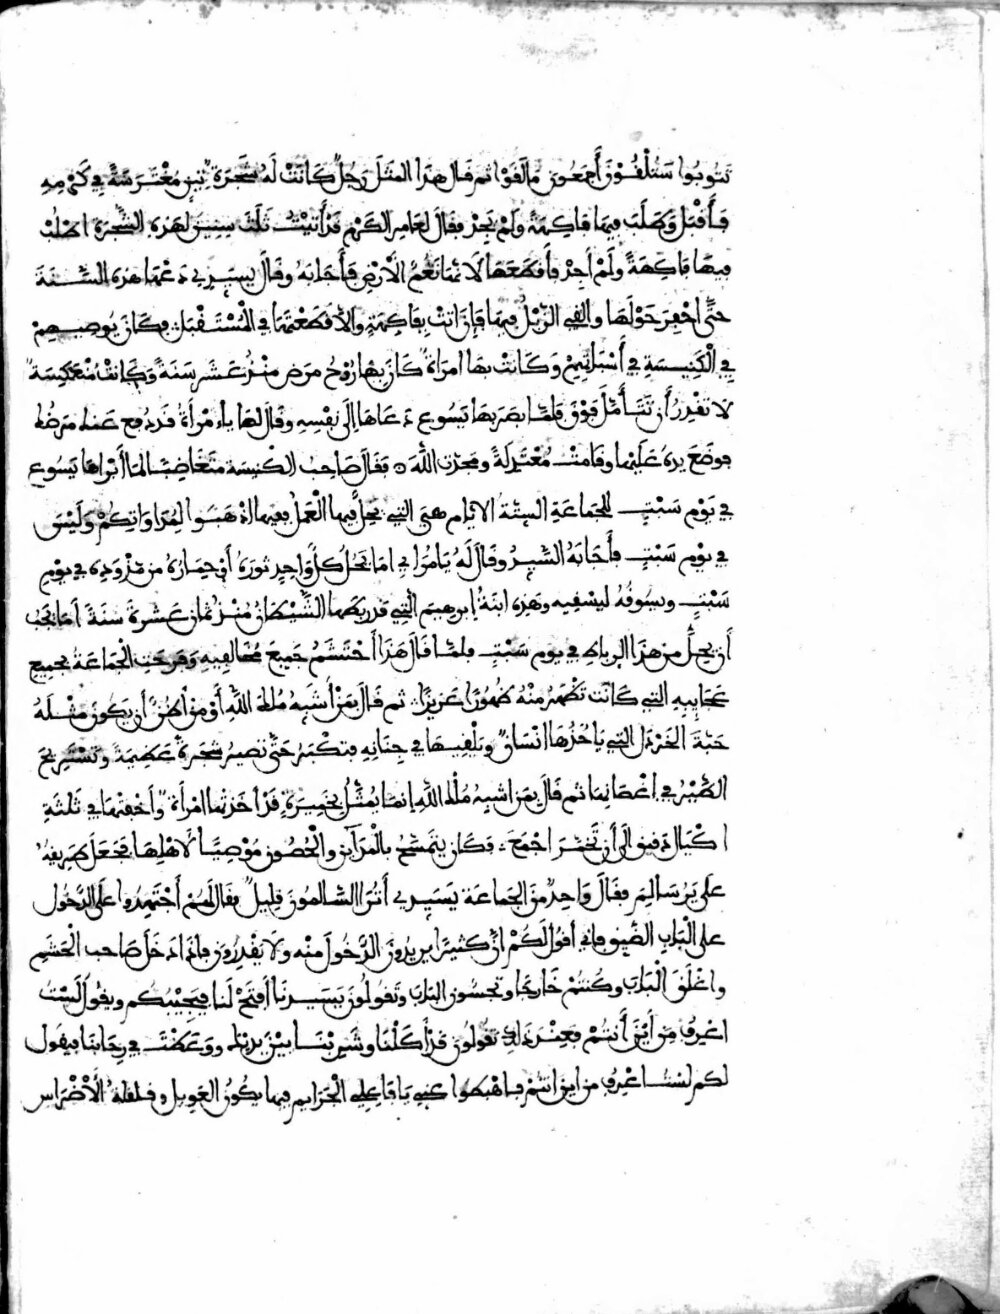 تتوبوا ستلقون أجمعون ما لقوا ثم قال هذا المثل رجل كانت له شجرة تين مغترسة في كرمه
فأقبل وطلب فيها فاكهة ولم يجد فقال لعامر الكرم قد أتيت ثلث سنين لهذه الشجرة اطلب
فيها فاكهة ولم أجد فاقطعها لا تمانعم الأرض فأجابه وقال يسيدي دعها هذه السنة
حتى احفر حولها والقي الزبل فيها فإن اتت بفاكهة والا قطعتها في المستقبل فكان يوصيهم
في الكنيسة في أسباتهم وكانت بها امرأة كان بها روح مرض منذ عشر سنة وكانت منعكسة
لا تقدر أن تتأمل فوق فلما بصر بها يسوع دعاها إلى نفسه وقال لها يا امرأة قد دفع عنك مرضك
فوضع يده عليها وقامت معتدلة ومجدت الله فقال صاحب الكنيسة متغاضبا لما أبراها يسوع
في يوم سبت للجماعة الستة الايام هي التي يحل فيها العمل ففيها اذهبوا لمداواتكم وليس
في يوم سبت فأجابه السيد وقال له يامرايي اما يحل كل واحد ثوره أو حماره من مزوده في يوم
سبت ويسوقه ليسقيه وهذه ابنة إبرهيم التي قد ربطها الشيطان منذ ثمان عشرة سنة أما يجب
أن يحل من هذا الرباط في يوم سبت فلما قال هذا أحتشم جميع مخالفيه وفرحت الجماعة بجميع
عجايبه التي كانت تظهر منه ظهورا عزيزا ثم قال بمن أشبه ملك الله أو من اظن أن يكون مثله
حبة الخردل التي ياخذها انسان ويلقيها في جنانه فتكبر حتى تصير شجرة عظيمة وتستريح
الطير في اغصانها ثم قال بمن اشبه ملك الله إنما يمثل بخميرة قد أخذتها امرأة وأخفتها في ثلثة
اكيال دقيق إلى أن تخمر اجمع فكان يتمشى بالمدآين والحصون موصيا لاهلها فجعل طريقه
على يرسالم فقال واحد من الجماعة يسيدي أترا السالمون قليل فقال لهم أجتهدوا على الدخول
على الباب الضيق فإني أقول لكم ان كثيرا يريدون الدخول منه ولا يقدرون فإذا دخل صاحب الحشم
واغلق الباب وكنتم خارجا وتجسون الباب وتقولون يسيدنا أفتح لنا فيجيبكم ويقول لست
اعرف من أين أنتم فعند ذلك تقولون قد أكلنا وشربنا بين يديك ووعظت في رحابنا فيقول
لكم لست اعرف من اين انتم فاهبطوا عني يا فاعلي الجرايم فيها يكون العويل وقلقلة الأضراس